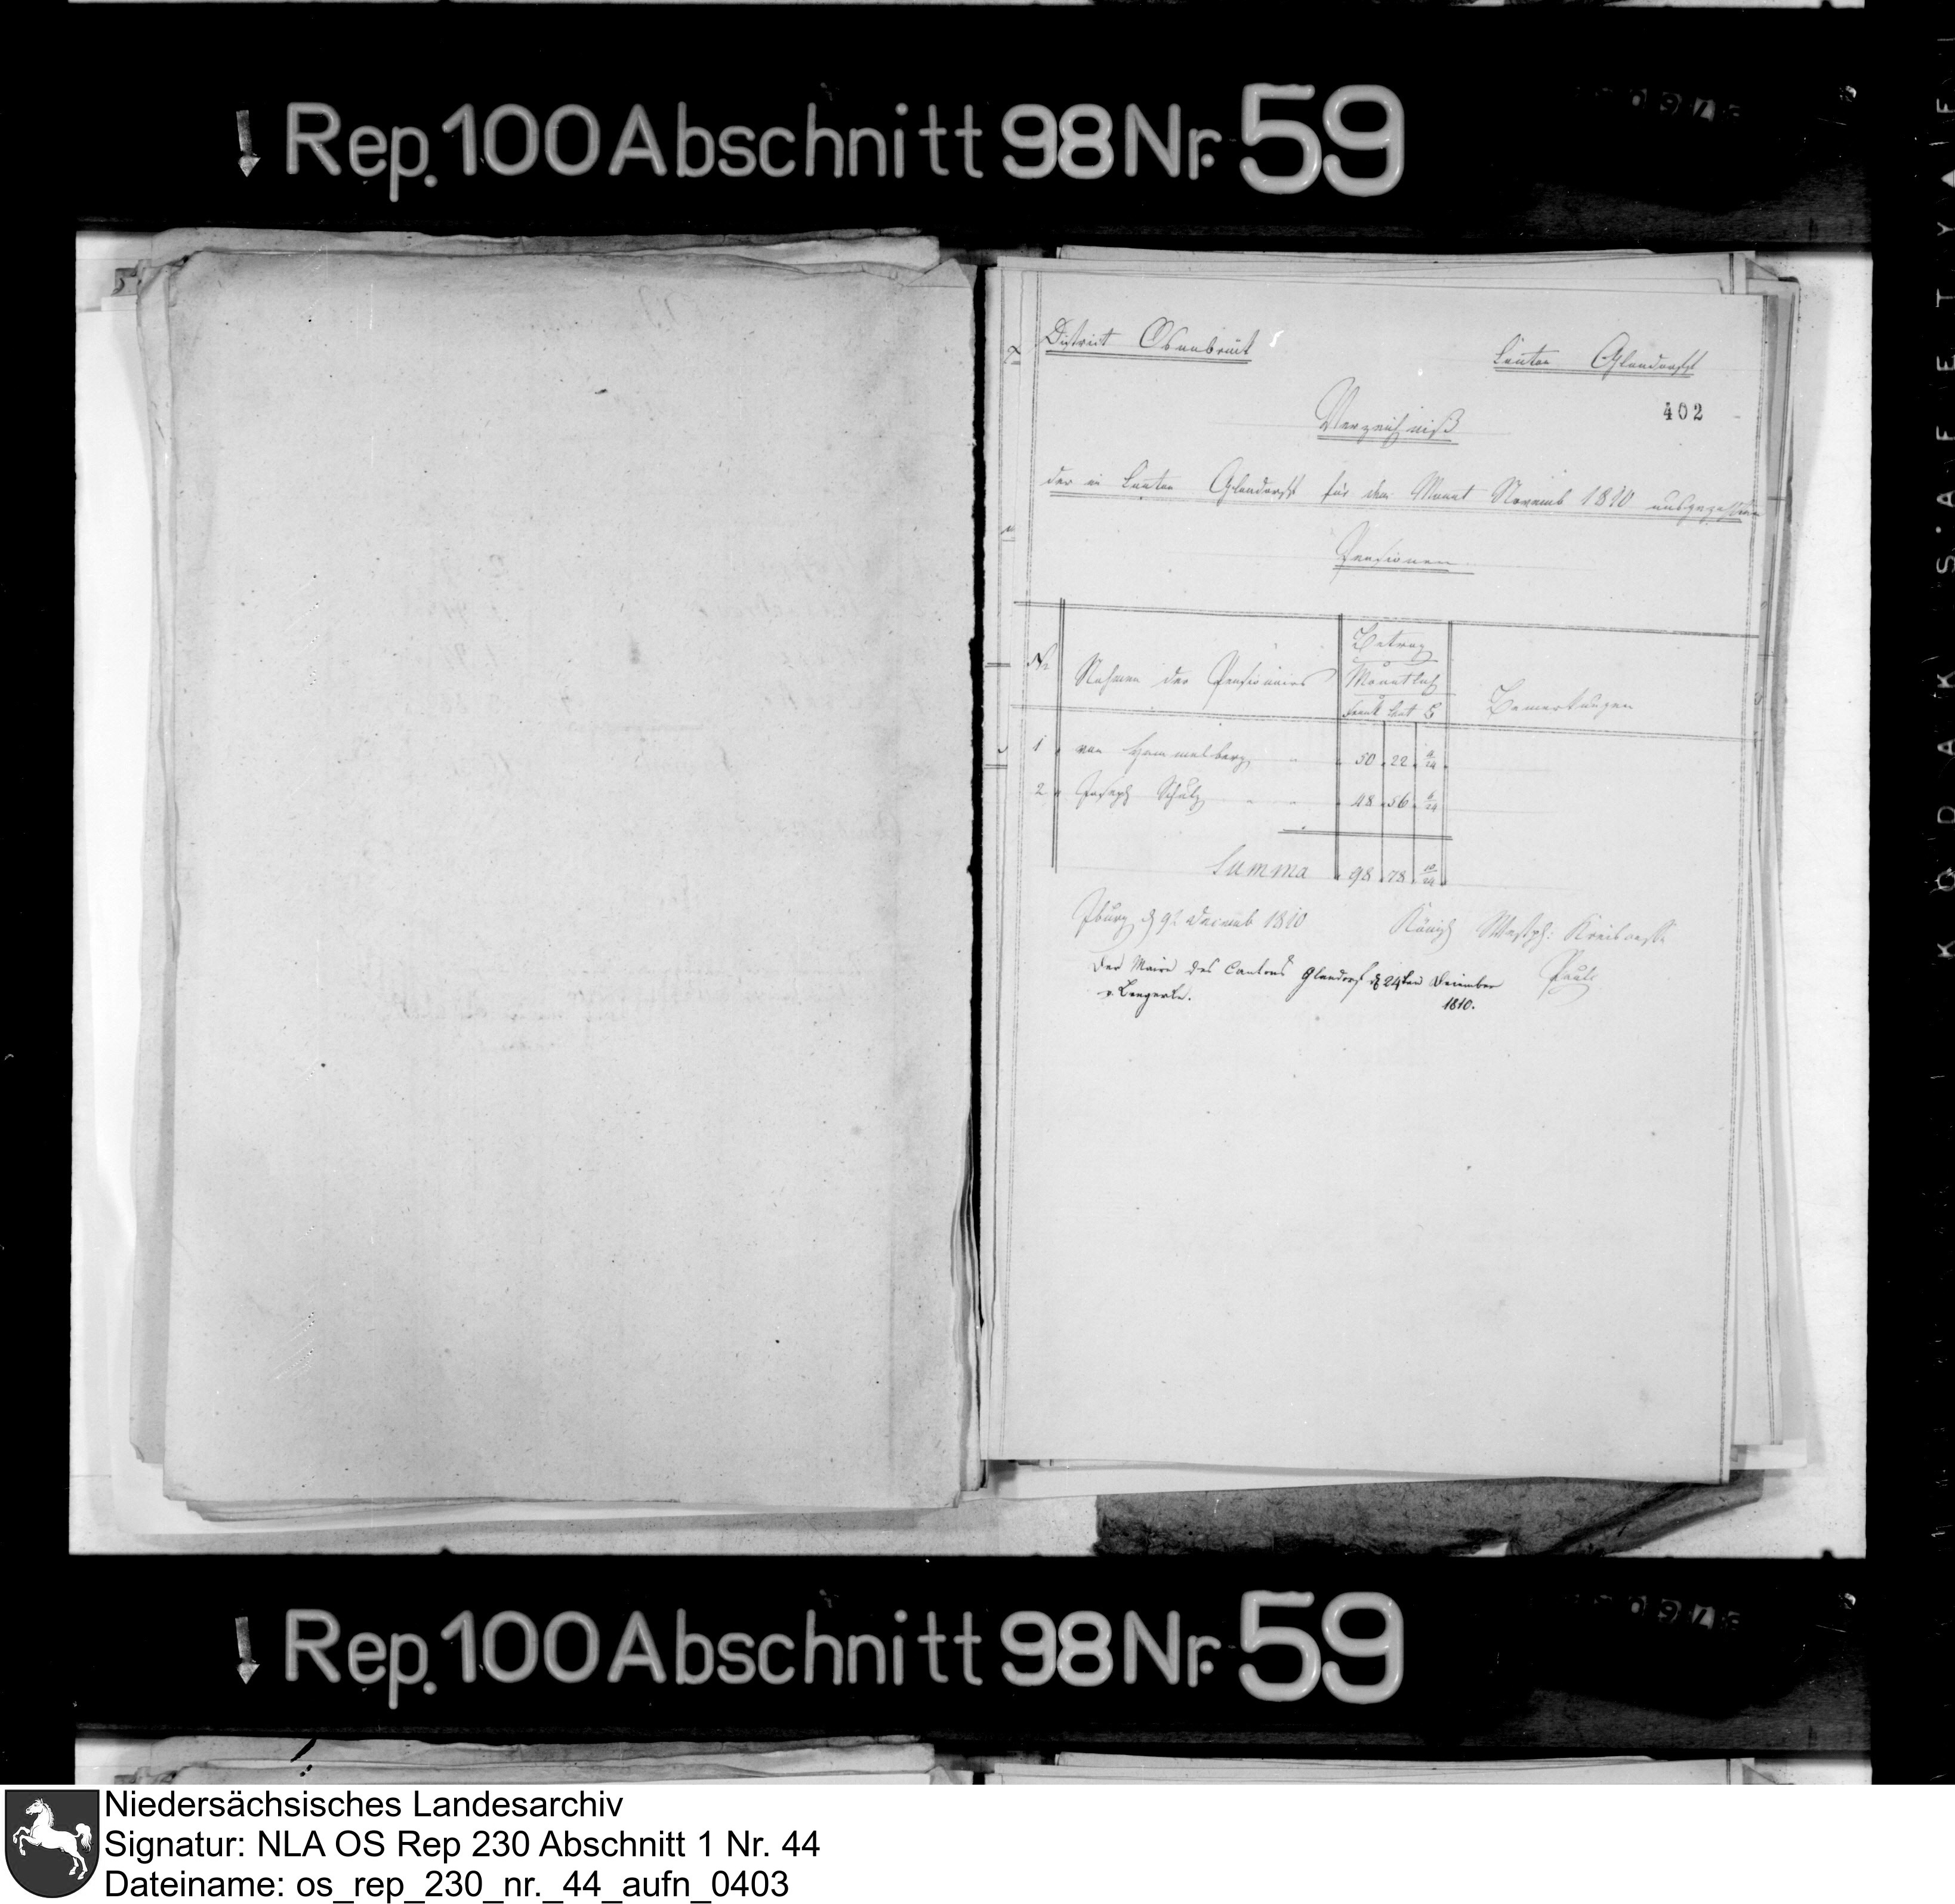 Rep. 100 Abschnitt 98 Nr. 59
District Osnabrück
Canton Glandorff
402
Verzeichniß
der in Canton Glandorff für den Monat Novemb 1810 ausgezahlten
Pensionen
No
Nahmen der Pensionairs
Betrag
Monatlich
Frank Cent
Bemerkungen
1 von Hammelberg 50 22
2 Joseph Schultz 48 56
Summa 98 78
Iburg d 9t Decemb 1810
Königl Westph: Kreiscasse
Der Maire des Cantons Glandorf d 24ten December
1810.
v. Lengerke.
Rep. 100 Abschnitt 98 Nr. 59
KODAK SAFETY
Niedersächsisches Landesarchiv
Signatur: NLA OS Rep 230 Abschnitt 1 Nr. 44
Dateiname: os_rep_230_nr._44_aufn_0403